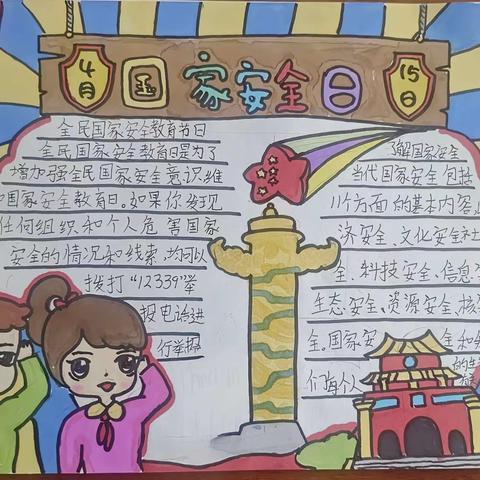 4月
国家安全日
15日
全民国家安全教育节日
全民国家安全教育日是为了
增加强全民国家安全意识维
国家安全教育日。如果你发现
任何组织和个人危害国家
安全的情况和线索,均可以
拨打“12339”举
报电话进
行举报
了解国家安全
当代国家安全包括
11个方面的基本内容
济安全、文化安全社
全、科技安全、信息
生态安全、资源安全、核
全。国家安 全和
们每个人 的生